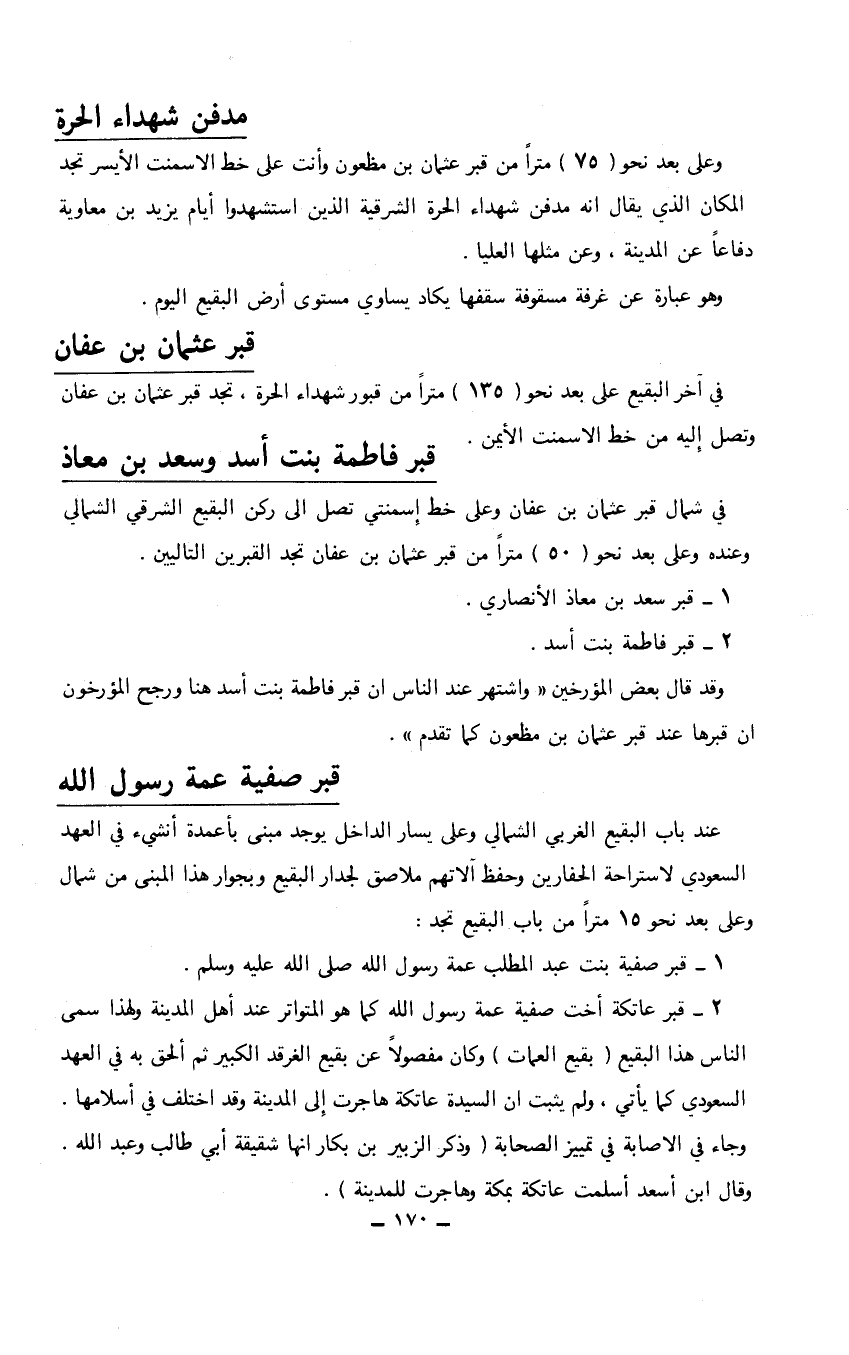 مدفن شهداء الحرة
وعلى بعد نحو ( ٧٥ ) متراً من قبر عثمان بن مظعون وأنت على خط الاسمنت الأيسر تجد
المكان الذي يقال انه مدفن شهداء الحرة الشرقية الذين استشهدوا أيام يزيد بن معاوية
دفاعاً عن المدينة ، وعن مثلها العليا .
وهو عبارة عن غرفة مسقوفة سقفها يكاد يساوي مستوى أرض البقيع اليوم .
قبر عثمان بن عفان
في آخر البقيع على بعد نحو ( ١٣٥ ) متراً من قبور شهداء الحرة ، تجد قبر عثمان بن عفان
وتصل إليه من خط الاسمنت الأيمن .
قبر فاطمة بنت أسد وسعد بن معاذ
في شمال قبر عثمان بن عفان وعلى خط إسمنتي تصل الى ركن البقيع الشرقي الشمالي
وعنده وعلى بعد نحو ( ٥٠ ) متراً من قبر عثمان بن عفان تجد القبرين التاليين .
١ ـ قبر سعد بن معاذ الأنصاري .
٢ ـ قبر فاطمة بنت أسد .
وقد قال بعض المؤرخين « واشتهر عند الناس ان قبر فاطمة بنت أسد هنا ورجح المؤرخون
ان قبرها عند قبر عثمان بن مظعون كما تقدم » .
قبر صفية عمة رسول الله
عند باب البقيع الغربي الشمالي وعلى يسار الداخل يوجد مبنى بأعمدة أنشيء في العهد
السعودي لاستراحة الحفارين وحفظ آلاتهم ملاصق لجدار البقيع وبجوار هذا المبنى من شمال
وعلى بعد نحو ١٥ متراً من باب البقيع تجد :
١ ـ قبر صفية بنت عبد المطلب عمة رسول الله صلى الله عليه وسلم .
٢ ـ قبر عاتكة أخت صفية عمة رسول الله كما هو المتواتر عند أهل المدينة ولهذا سمى
الناس هذا البقيع ( بقيع العمات ) وكان مفصولاً عن بقيع الغرقد الكبير ثم ألحق به في العهد
السعودي كما يأتي ، ولم يثبت ان السيدة عاتكة هاجرت إلى المدينة وقد اختلف في أسلامها .
وجاء في الاصابة في تمييز الصحابة ( وذكر الزبير بن بكار انها شقيقة أبي طالب وعبد الله .
وقال ابن أسعد أسلمت عاتكة بمكة وهاجرت للمدينة ) .
ـ ١٧٠ ـ